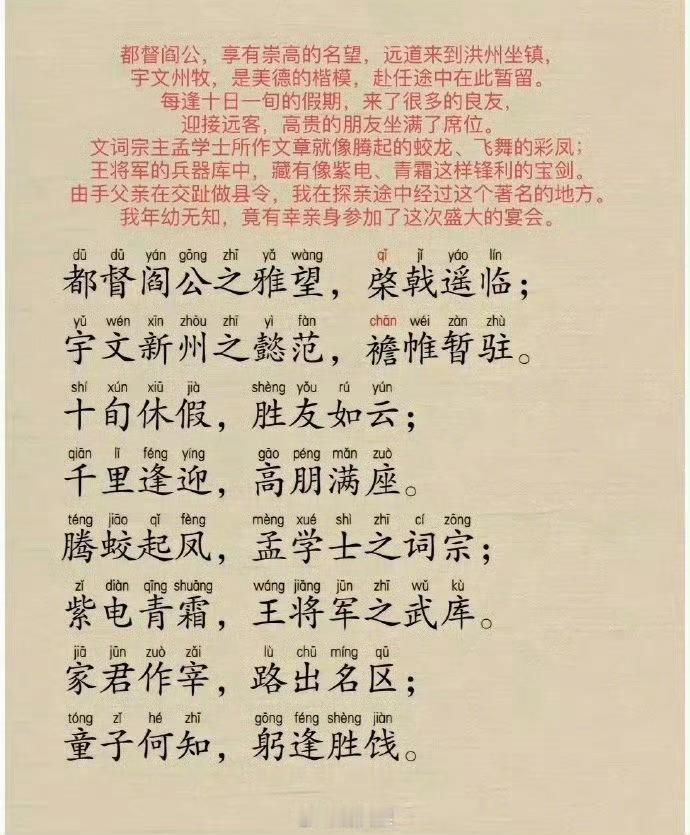 都督阎公，享有崇高的名望，远道来到洪州坐镇，
宇文州牧，是美德的楷模，赴任途中在此暂留。
每逢十日一旬的假期，来了很多的良友，
迎接远客，高贵的朋友坐满了席位。
文词宗主孟学士所作文章就像腾起的蛟龙、飞舞的彩凤；
王将军的兵器库中，藏有像紫电、青霜这样锋利的宝剑。
由手父亲在交趾做县令，我在探亲途中经过这个著名的地方。
我年幼无知，竟有幸亲身参加了这次盛大的宴会。
dū dū yán gōng zhī yǎ wàng qǐ jǐ yáo lín
都督阎公之雅望，棨戟遥临；
yǔ wén xīn zhōu zhī yì fàn chān wéi zàn zhù
宇文新州之懿范，襜帷暂驻。
shí xún xiū jià shèng yǒu rú yún
十旬休假，胜友如云；
qiān lǐ féng yíng gāo péng mǎn zuò
千里逢迎，高朋满座。
téng jiāo qǐ fèng mèng xué shì zhī cí zōng
腾蛟起凤，孟学士之词宗；
zǐ diàn qīng shuāng wáng jiāng jūn zhī wǔ kù
紫电青霜，王将军之武库。
jiā jūn zuò zǎi lù chū míng qū
家君作宰，路出名区；
tóng zǐ hé zhī gōng féng shèng jiàn
童子何知，躬逢胜饯。